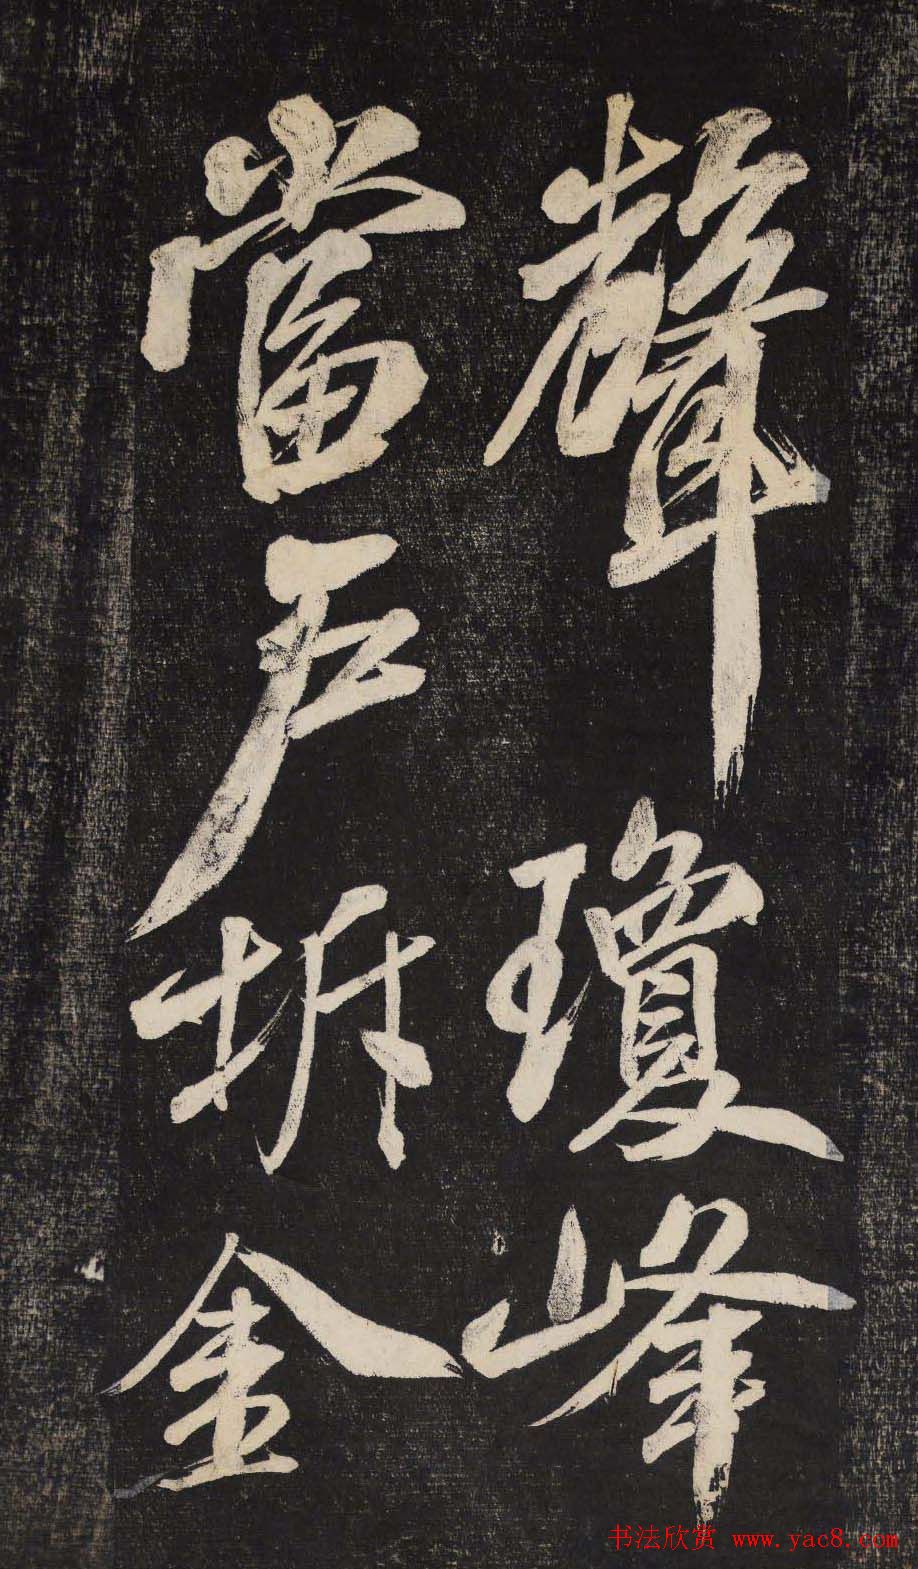 聲瓊峰
當戶坼金
书法欣赏 www.yac8.com